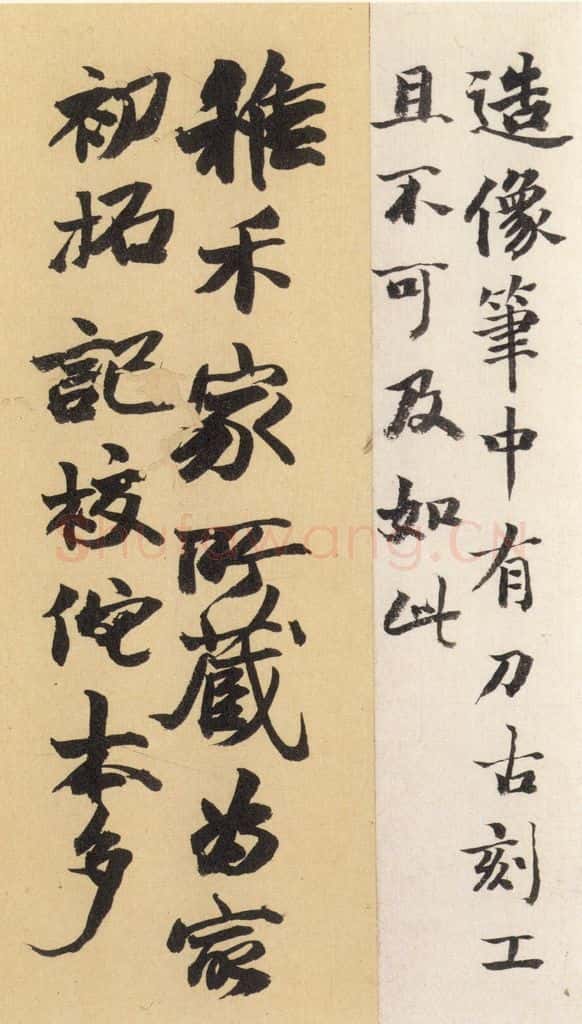 造像筆中有刀古刻工
且不可及如此
稚禾家所藏為家
初拓記校佗本多
Shufawang.CN